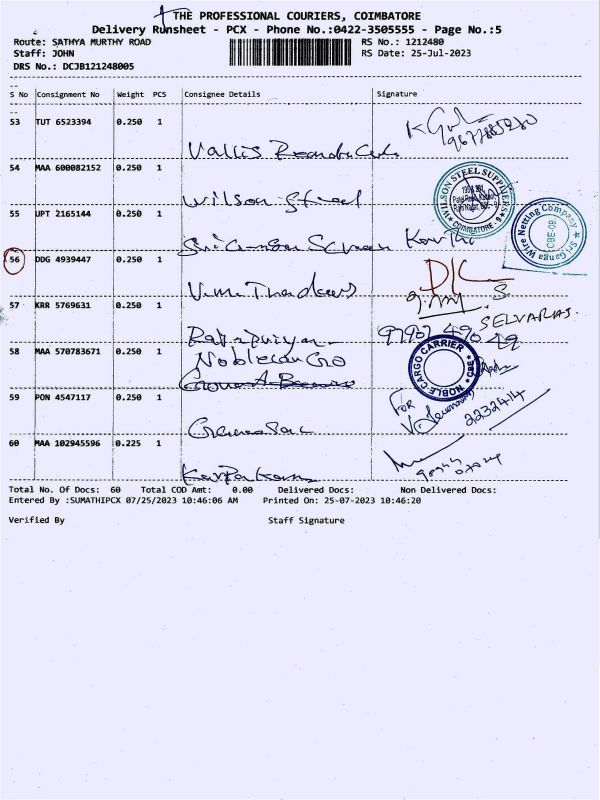 THE PROFESSIONAL COURIERS, COIMBATORE
Delivery Runsheet - PCX - Phone No.:0422-3505555 - Page No.:5
Route: SATHYA MURTHY ROAD RS No.: 1212480
Staff: JOHN RS Date: 25-Jul-2023
DRS No.: DCJB121248005
S No Consignment No Weight PCS Consignee Details Signature
53 TUT 6523394 0.250 1
Vallis
54 MAA 600082152 0.250 1
Wilson Steel
WILSON STEEL SUPPLIERS
COIMBATORE
55 UPT 2165144 0.250 1
Sri Ganga Screen
Sri Ganga Wire Netting Company
CBE-09
56 DDG 4939447 0.250 1
Traders
57 KRR 5769631 0.250 1
SELVARAJ.
58 MAA 570783671 0.250 1
Noble
NOBLE CARGO CARRIER
CBE
59 PON 4547117 0.250 1
For
2232414
60 MAA 102945596 0.225 1
Total No. Of Docs: 60 Total COD Amt: 0.00 Delivered Docs: Non Delivered Docs:
Entered By :SUMATHIPCX 07/25/2023 10:46:06 AM Printed On: 25-07-2023 10:46:20
Verified By Staff Signature